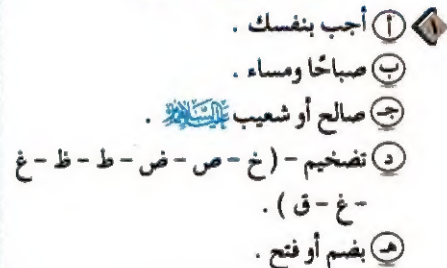 ١ أ أجب بنفسك .
ب صباحًا ومساء .
جـ صالح أو شعيب عليهما السلام .
د تفخيم - ( خ - ص - ض - ط - ظ - غ
- غ - ق ) .
هـ بضم أو فتح .